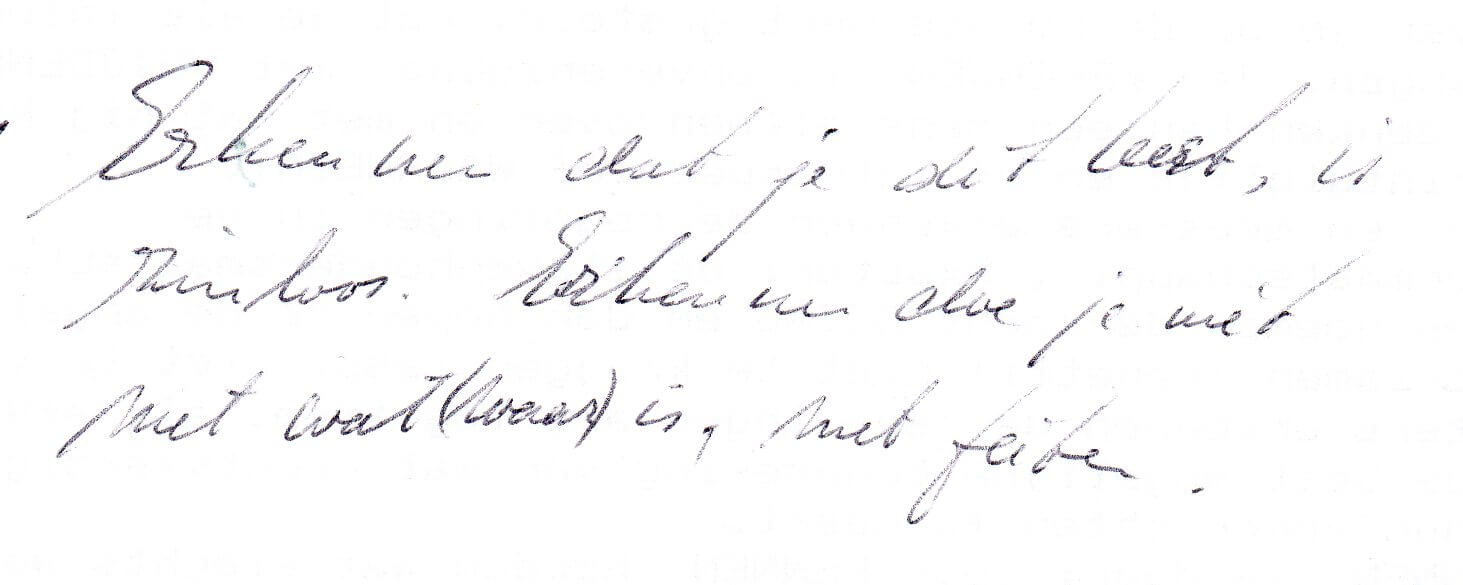 Erkennen dat je dit leest, is
zinloos. Erkennen doe je niet
met wat (waar) is, met feiten.